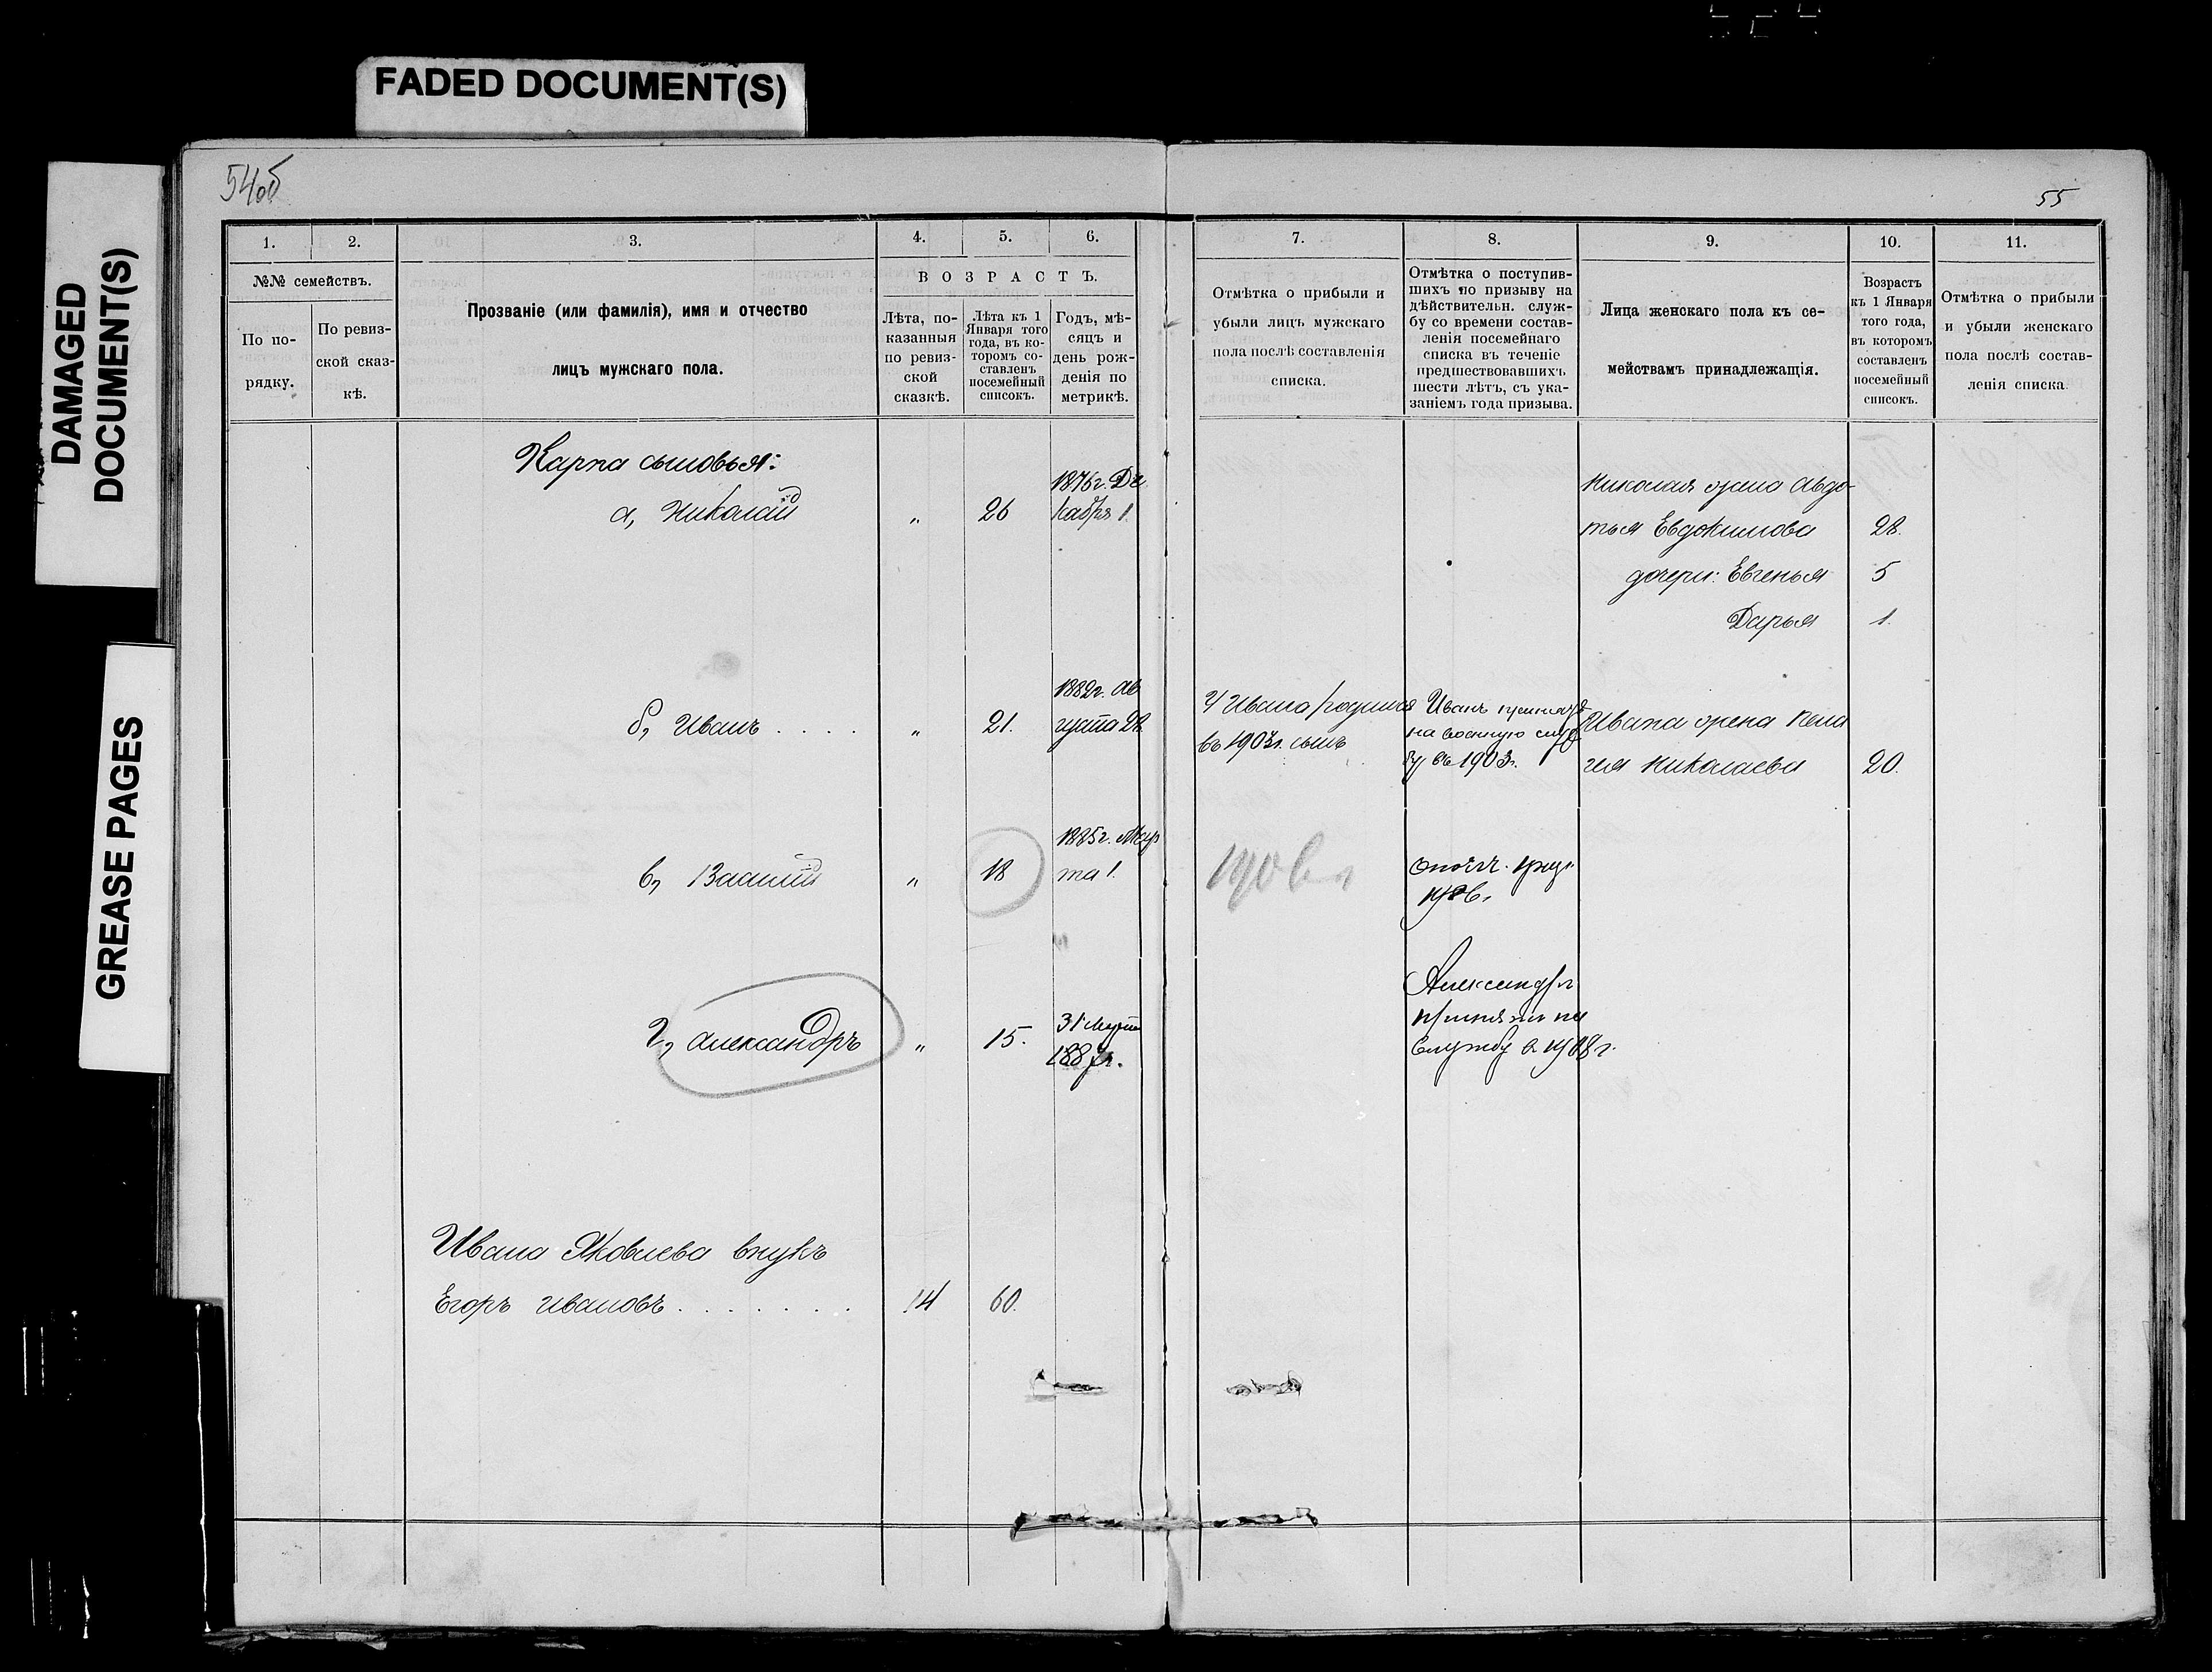 FADED DOCUMENT(S)
DAMAGED
DOCUMENT(S)
GREASE PAGES
54об
55
1.
2.
3.
4.
5.
6.
7.
8.
9.
10.
11.
№№ семействъ.
По по-
рядку.
По ревиз-
ской сказ-
кѣ.
Прозваніе (или фамилія), имя и отчество
лицъ мужскаго пола.
ВОЗРАСТЪ.
Лѣта, по-
казанныя
по ревиз-
ской
сказкѣ.
Лѣта къ 1
Января того
года, въ ко-
торомъ со-
ставленъ
посемейный
списокъ.
Годъ, мѣ-
сяцъ и
день рож-
денія по
метрикѣ.
Отмѣтка о прибыли и
убыли лицъ мужскаго
пола послѣ составленія
списка.
Отмѣтка о поступив-
шихъ по призыву на
дѣйствительн. служ-
бу со времени состав-
ленія посемейнаго
списка въ теченіе
предшествовавшихъ
шести лѣтъ, съ ука-
заніемъ года призыва.
Лица женскаго пола къ се-
мействамъ принадлежащія.
Возрастъ
къ 1 Января
того года,
въ которомъ
составленъ
посемейный
списокъ.
Отмѣтка о прибыли
и убыли женскаго
пола послѣ состав-
ленія списка
Карпа сыновья:
а, Николай " 26
1876г. Де
кабря 1.
Николая жена Авдо-
тья Евдокимова 28.
дочери: Евгенья 5
Дарья 1.
б, Иванъ . . . . " 21.
1882г. Ав
густа 28.
У Ивана родился
въ 1903г. сынъ
Иванъ принятъ
на военную служ
бу въ 1903г.
Ивана жена Пела
гея Николаева 20.
в, Василій " 18
1885г. Мар
та 1.
1906 г
1906.
г, Александръ " 15.
31 Августа
1887г.
Александръ
принятъ на
службу в 1908 г.
Ивана Яковлева внукъ
Егоръ Ивановъ . . . . . . . 14 60.